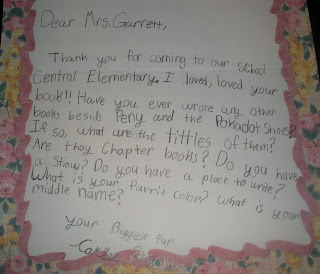 Dear Mrs. Garrett,
Thank you for coming to our school
Central Elementary. I loved, loved your
book!! Have you ever wrote any other
books besids Peny and the Polkadot Shoes?
If so, what are the tittles of them?
Are they Chapter books? Do you have
a Stow? Do you have a place to write?
What is your favris color? What is your
middle name?
your Biggest fan